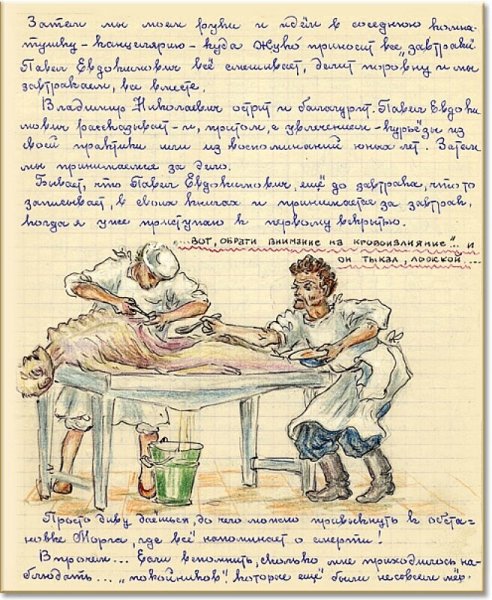 Затем мы моем руки и идём в соседнюю комна-
тушку – канцелярию – куда Жуко́ приносит все „завтраки".
Павел Евдокимович всё смешивает, делит поровну и мы
завтракаем, все вместе.
Владимир Николаевич острит и балагурит. Павел Евдоки
мович рассказывает – и, притом, с увлечением – курьёзы из
своей практики или из воспоминаний юных лет. Затем
мы принимаемся за дело.
Бывает, что Павел Евдокимович, ещё до завтрака, что-то
записывает, в своих книгах и принимается за завтрак,
когда я уже приступаю к первому вскрытию.
...Вот, обрати внимание на кровоизлияние"... и
он тыкал, ложкой...
Просто диву даёшься, до чего можно привыкнуть к обста-
новке Морга, где всё напоминает о смерти!
Впрочем... Если вспомнить, сколько мне приходилось на-
блюдать... „покойников"! которые ещё были не совсем мёр-